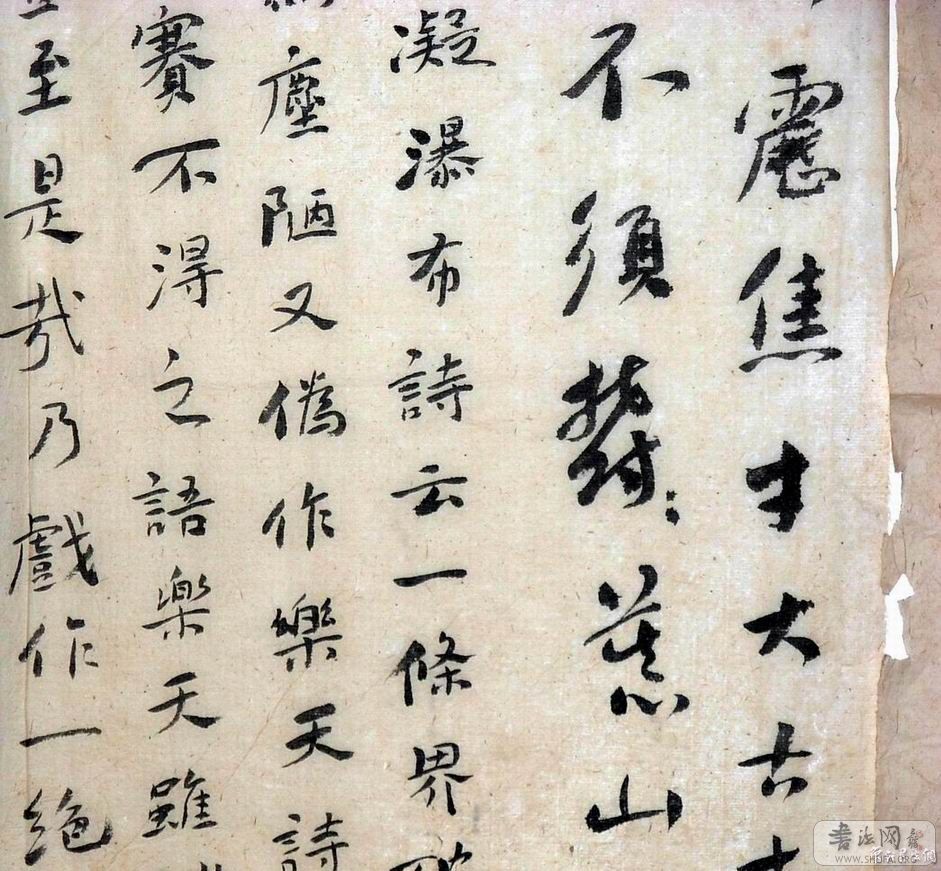 焦才大古
不須山
凝瀑布詩云一條界
塵陋又僞作樂天詩
賽不得之語樂天雖
至是哉乃戲作一絶
書法网
WWW.SHUFA.ORG